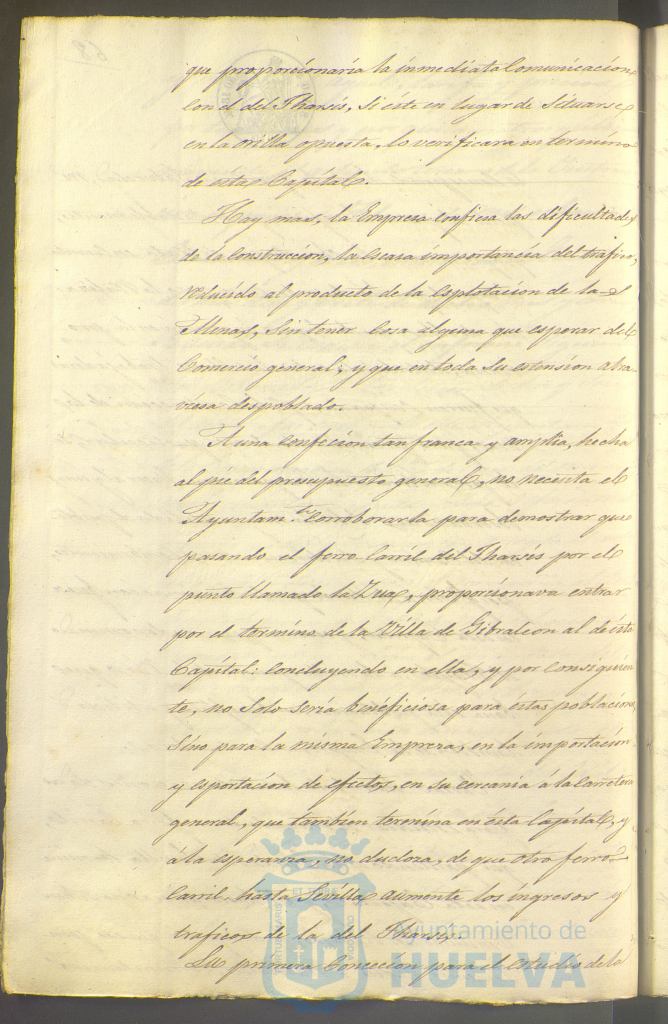 que proporcionaria la inmediata Comunicacion
con el del Tharsis, si éste en lugar de Situarse
en la orilla opuesta, lo verificara en termino
de esta Capital.
Hay mas, la Empresa confiesa las dificultades
de la Construccion, la escasa importancia del trafico,
reducido al producto de la esplotacion de las
Minas, Sin tener Cosa alguna que esperar del
Comercio general; y que en toda Su estension atra-
viesa despoblado.
A una confecion tan franca y amplia, hecha
al pié del presupuesto general, no necesita el
Ayuntam.to corroborarla para demostrar que
pasando el ferro Carril del Tharsis por el
punto llamado la Zua, proporcionava entrar
por el termino de la Villa de Gibraleon al de esta
Capital: concluyendo en ella, y por consiguien-
te, no Solo sería beneficiosa para éstas poblaciones
Sino para la misma Empresa, en la importacion
y esportacion de efectos, en su cercania á la Carretera
general, que tambien termina en ésta Capital, y
á la esperanza, no dudoza, de que otro ferro-
Carril hasta Sevilla aumente los ingresos y
traficos de la del Tharsis.
La primera Concecion para el estudio de la
Ayuntamiento de
HUELVA